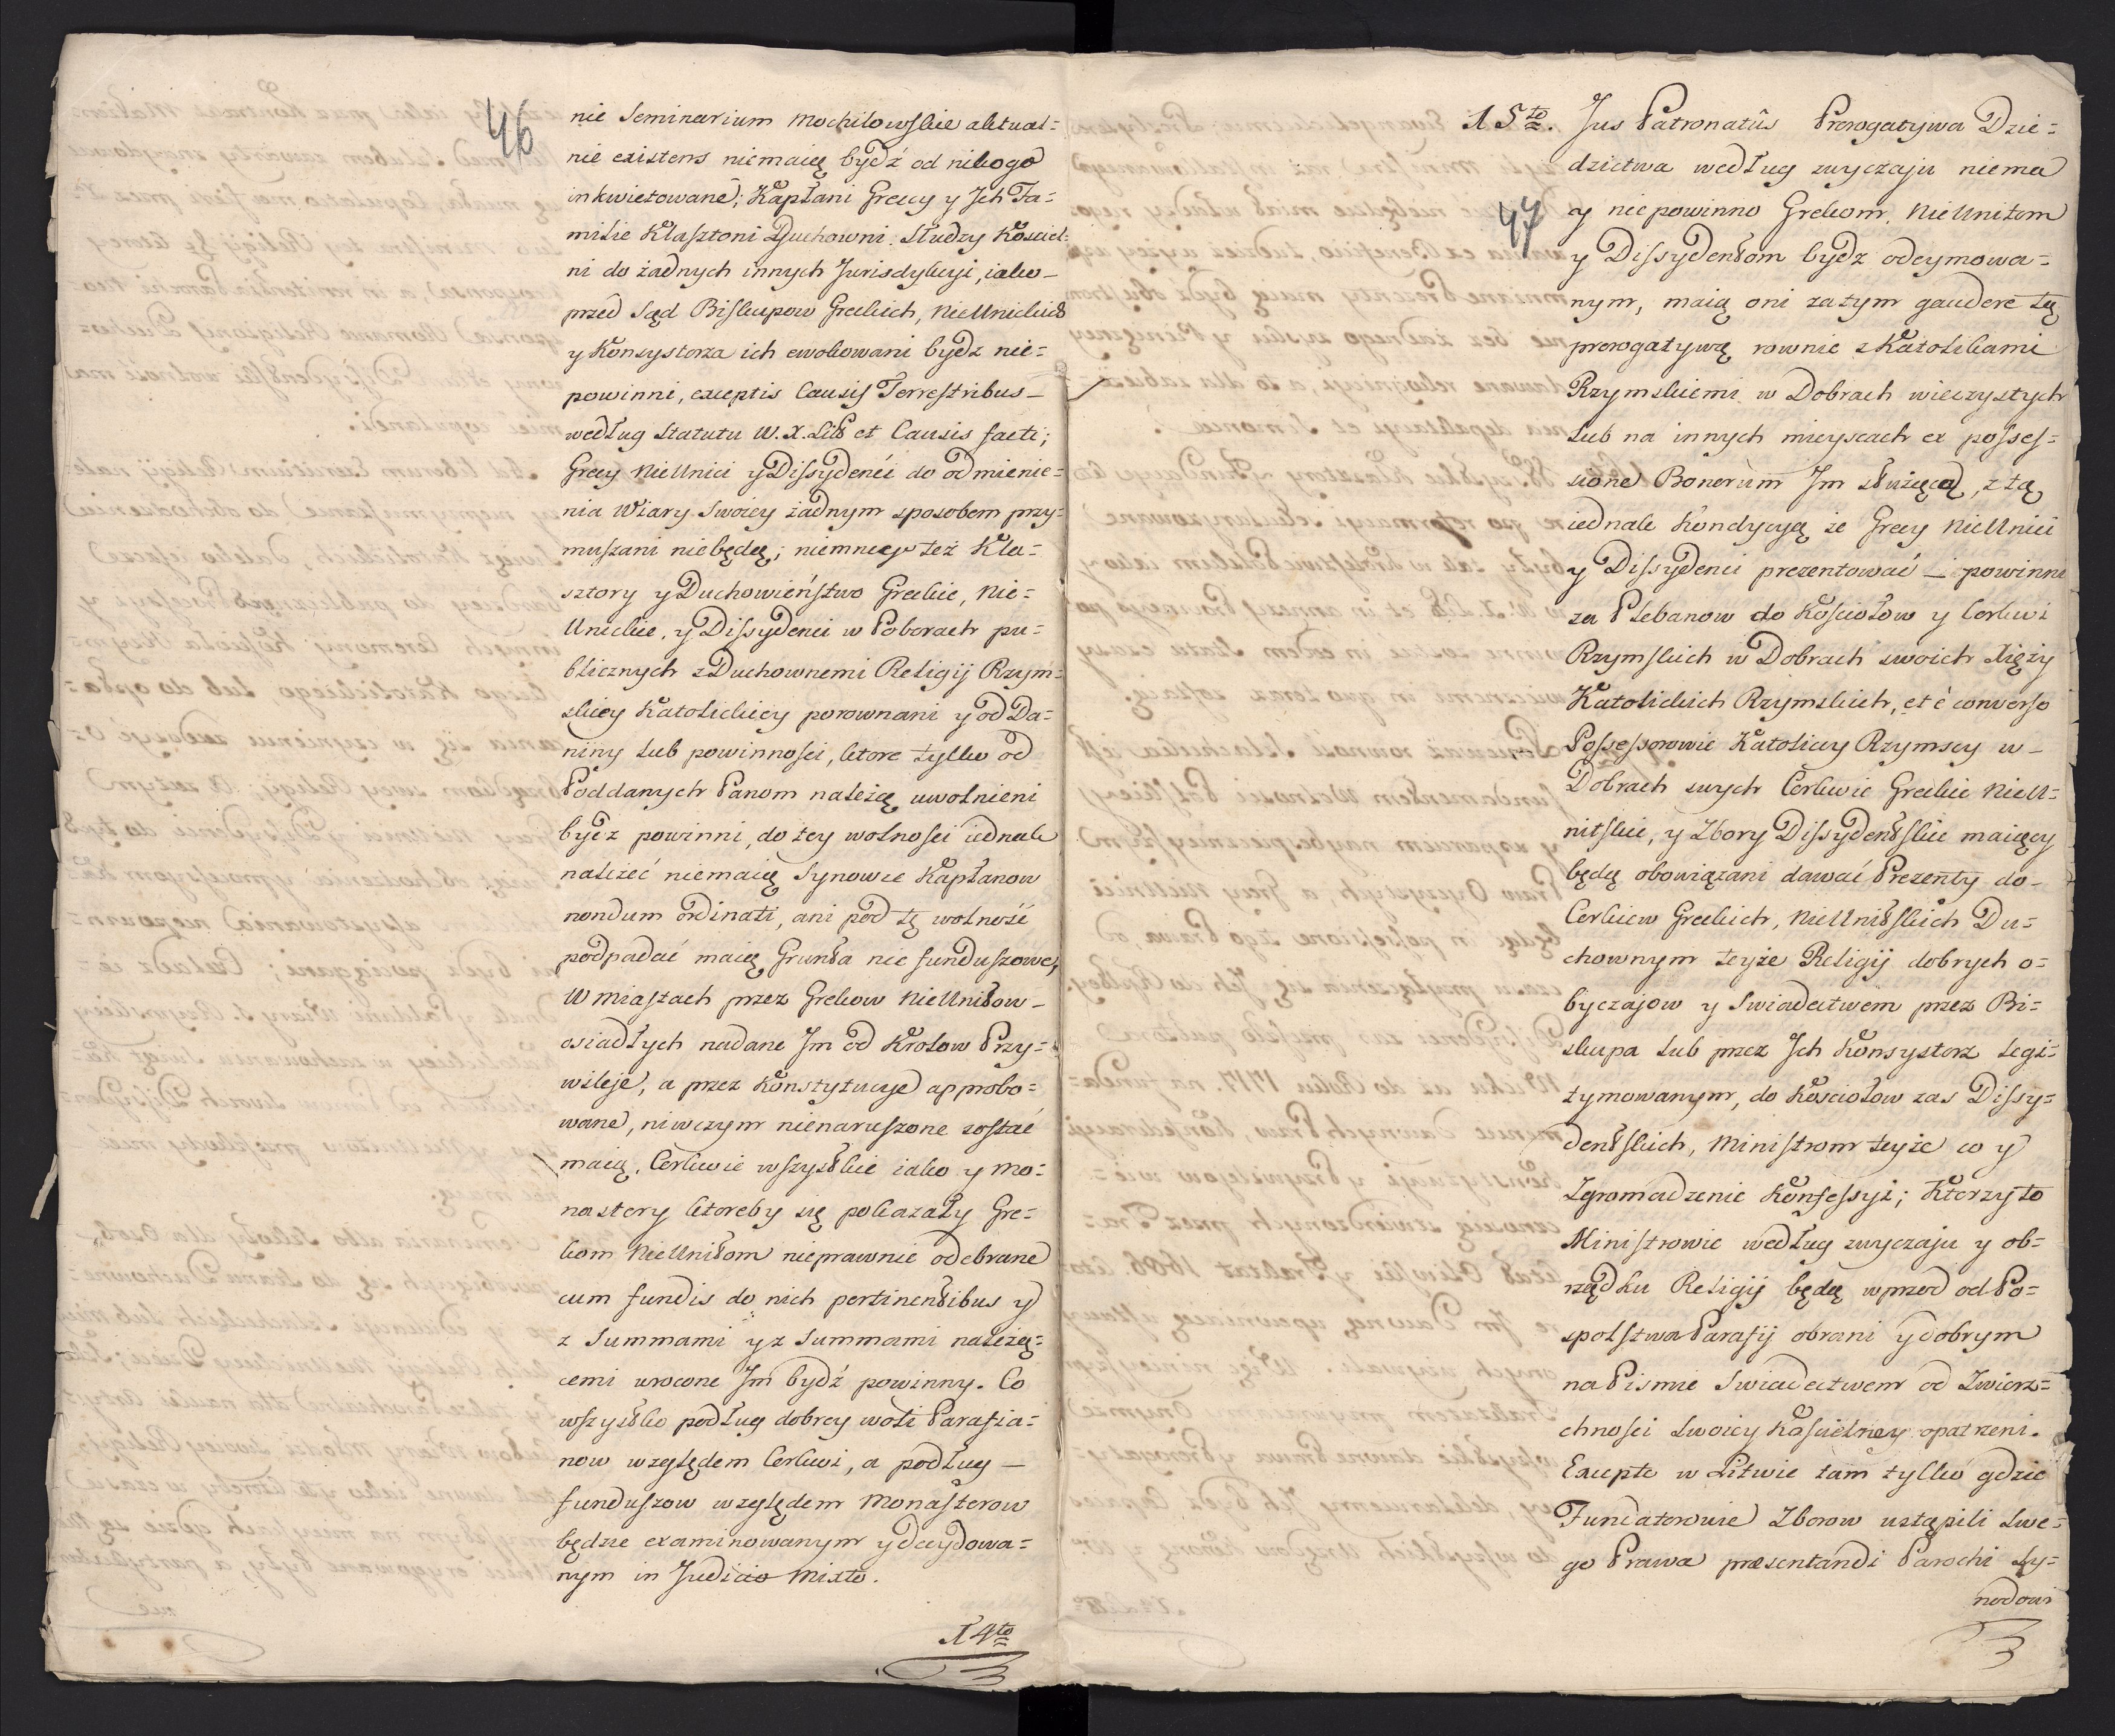 46
nie Seminarium Mochilowskie aktual=
nie existens niemaią bydź od nikogo
inkwietowane; Kapłani Greccy y Jch Fa=
milie Klasztoni Duchowni, Słudzy Kosciel=
ni do żadnych innych Jurisdykcyi, iako —
przed Sąd Biskupow Greckich, NieUnickich
y Konsystorza ich ewokowani bydz nie=
powinni, exceptis Causis Terrestribus —
według Statutu W. X. Litt et Causis facti;
Grecy NieUnici y Dissydenći do odmienie=
nia Wiary Swoiey żadnym sposobem przy=
muszani niebędą; niemniey też Kla=
sztory y Duchowieństwo Greckie, Nie=
Unickie, y Dissydenci w Poborach pu=
blicznych z Duchownemi Religij Rzym=
skiey Katolickiey porownani y od Da=
niny lub powinnosci, ktore tylko od
Poddanych Panom należą, uwolnieni
bydź powinni, do tey wolnosci iednak
należeć niemaią Synowie Kapłanow
nondum ordinati, ani pod tę wolność
podpadać maią Grunta nie funduszowe,
W miastach przez Grekow NieUnitow —
osiadłych nadane Jm od Krolow Przy=
wileje, a przez Konstytucye approbo=
wane, niwczym nienaruszone zostać
maią. Cerkwie wszystkie iako y Mo=
nastery ktoreby się pokazały Gre=
kom NieUnitom nieprawnie odebrane
cum fundis do nich pertinentibus y
z Summami y z Summami należą=
cemi wrocone Jm bydź powinny. Co
wszystko podług dobrey woli Parafia=
now względem Cerkwi, a podług —
funduszow względem Monasterow
będzie examinowanym y decydowa=
nym in Judicio Mixto.
14to
15to. Jus Patronatûs Prerogatywa Dzie=
dzictwa według zwyczaju niema
47
y niepowinno Grekom, NieUnitom
y Dissydentom bydz odeymowa=
nym, maią oni zatym gaudere tą
prerogatywą rownie z Katolikami
Rzymskiemi w Dobrach wieczystych
lub na innych mieyscach ex posses=
sione Bonorum Jm służącą, z tą
iednak Kondycyą że Grecy NieUnici
y Dissydenci prezentować — powinni
za Plebanow do Kościołow y Cerkwi
Rzymskich w Dobrach swoich Xięży
Katolickich Rzymskich, et è converso
Possessorowie Katolicy Rzymscy w —
Dobrach swych Cerkwie Greckie NieU=
nitskie, y Zbory Dissydentskie maiący
będą obowiązani dawać Prezenty do —
Cerkiew Greckich, NieUnitskich Du=
chownym teyże Religij dobrych o=
byczajow y Swiadectwem przez Bi=
skupa lub przez Jch Konsystorz legi=
tymowanym, do Kosciołow zas Dissy=
dentskich, Ministrom teyże co y
Zgromadzenie Konfessyi; Ktorzyto
Ministrowie według zwyczaju y ob=
rządku Religij będą wprzod od Po=
spolstwa Parafij obrani y dobrym
na Pismie Swiadectwem od Zwierz=
chnosci swoiey Kościelney opatrzeni.
Excepto w Litwie tam tylko gdzie
Fundatorowie Zborow ustąpili swe=
go Prawa præsentandi Parochi Sy=
nodowi